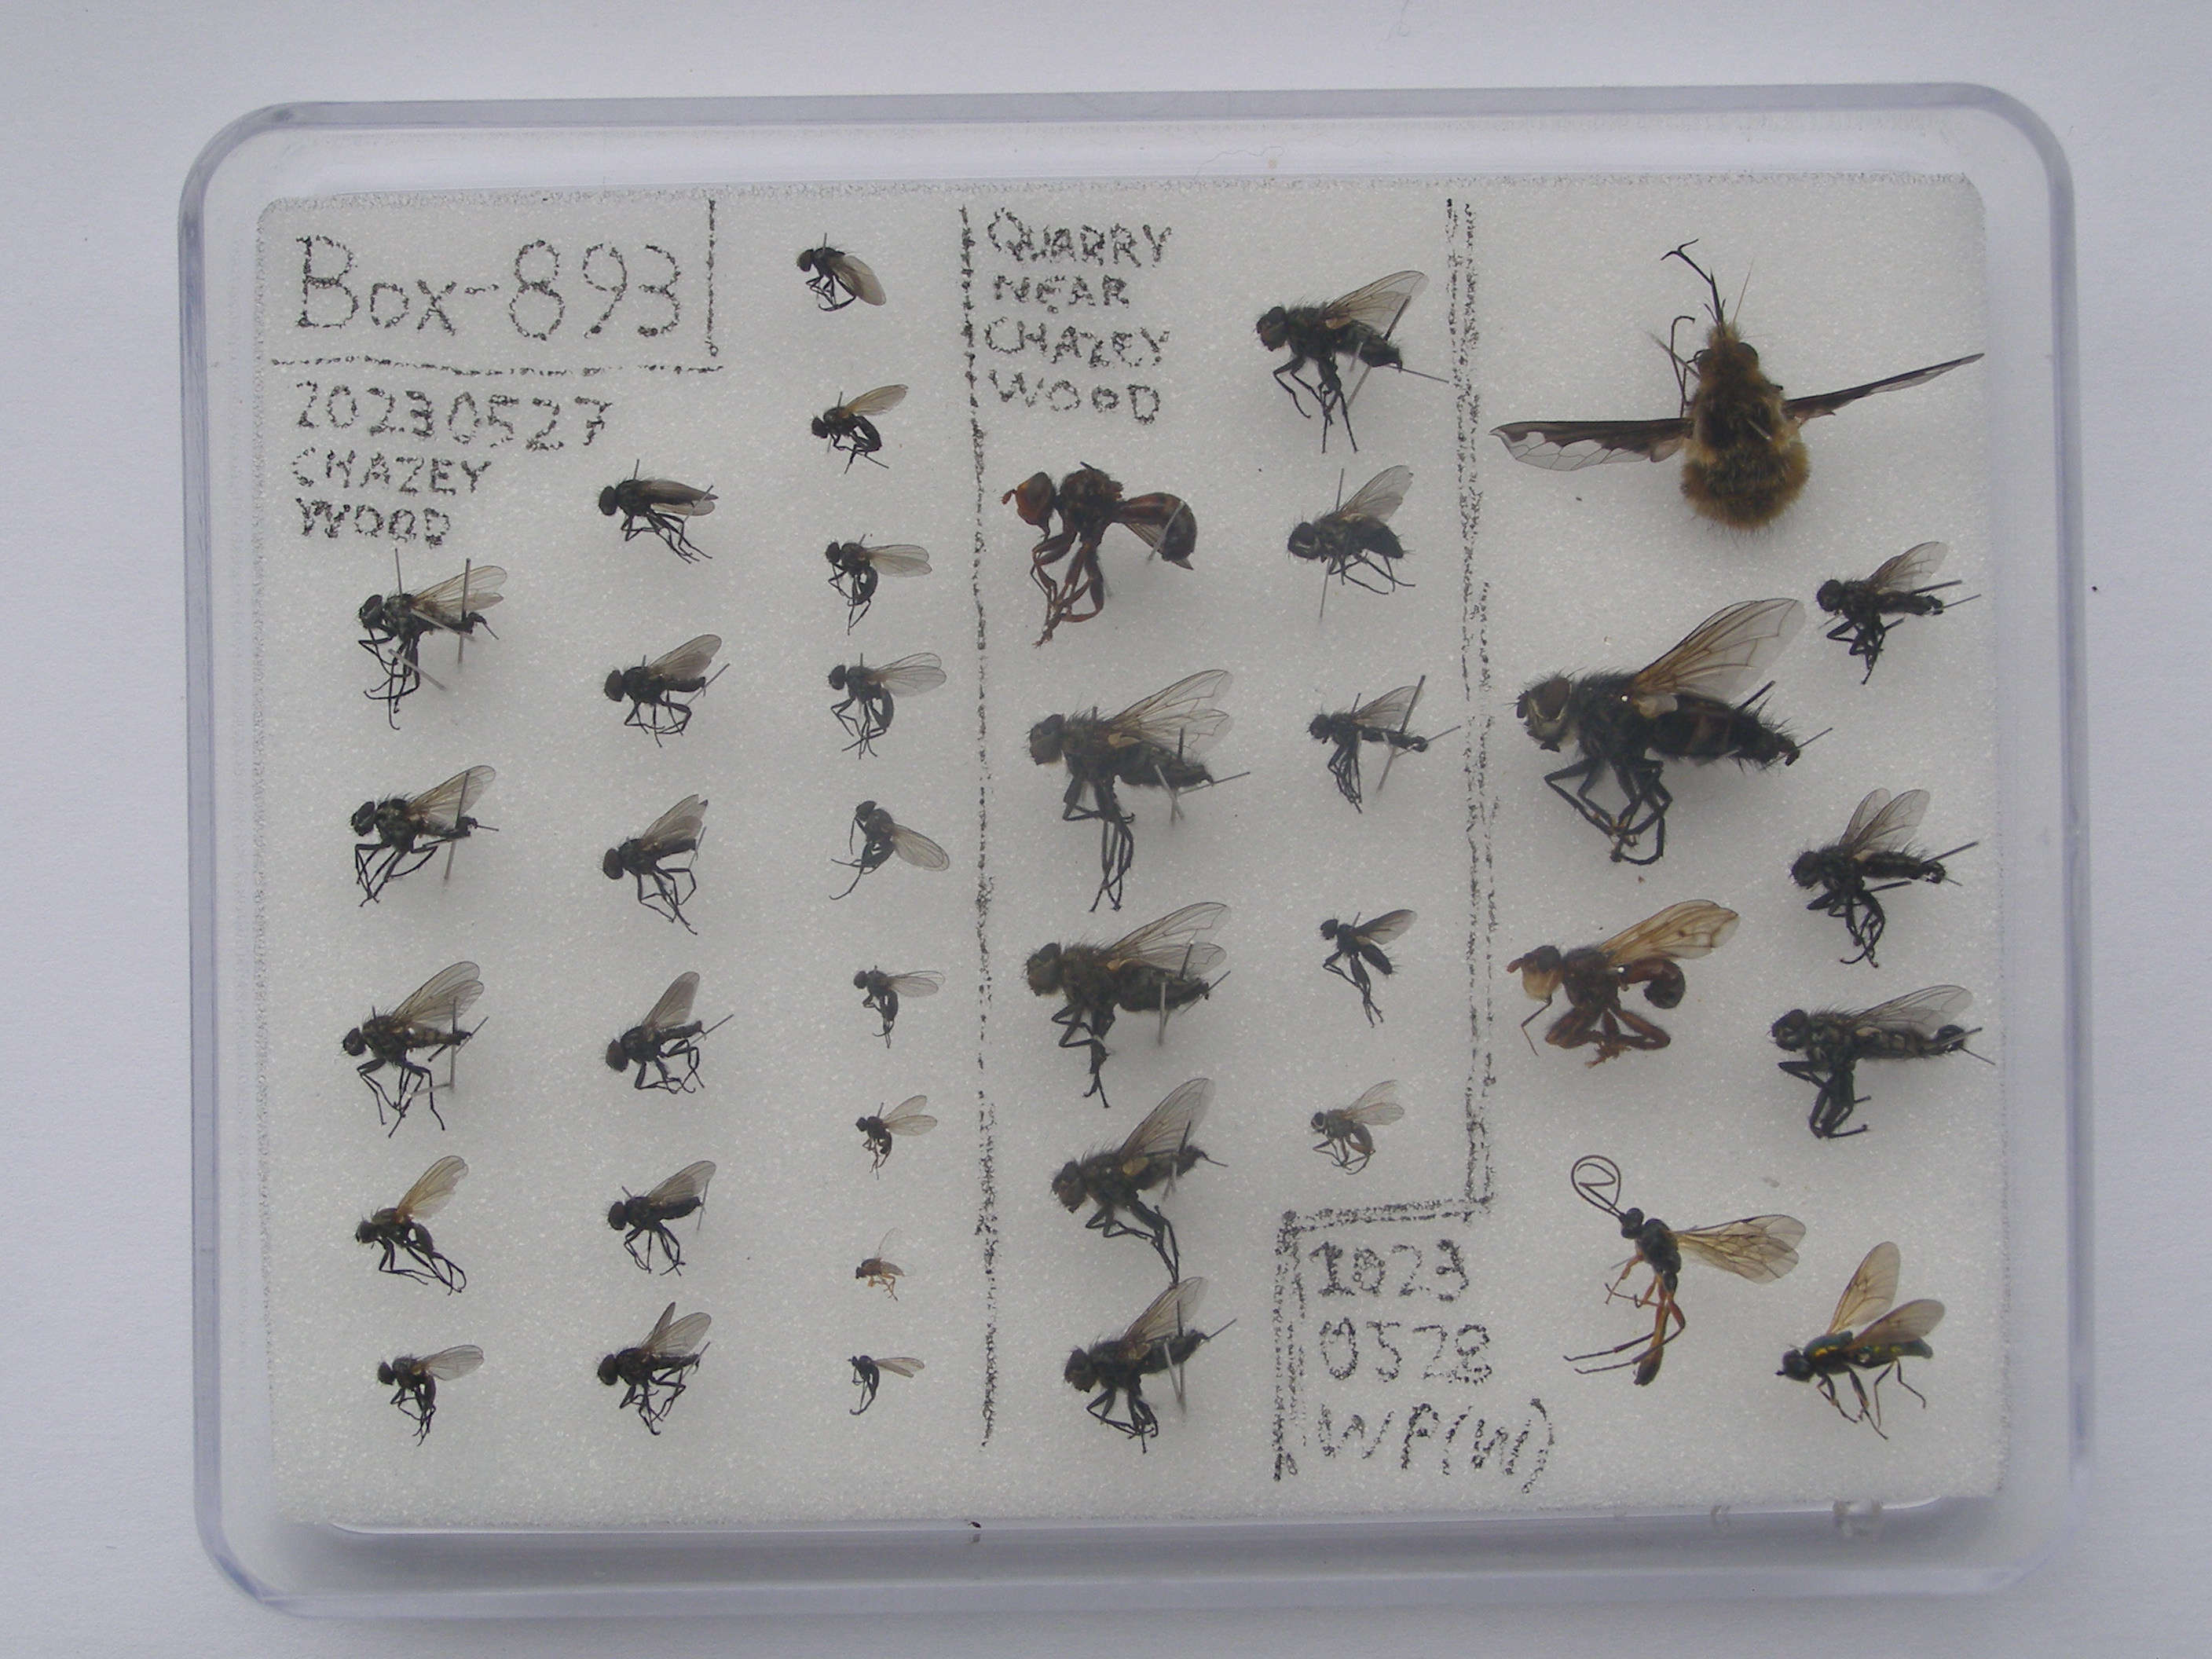 Box-893
20230527
CHAZEY
WOOD
QUARRY
NEAR
CHAZEY
WOOD
2023
0528
WP(W)